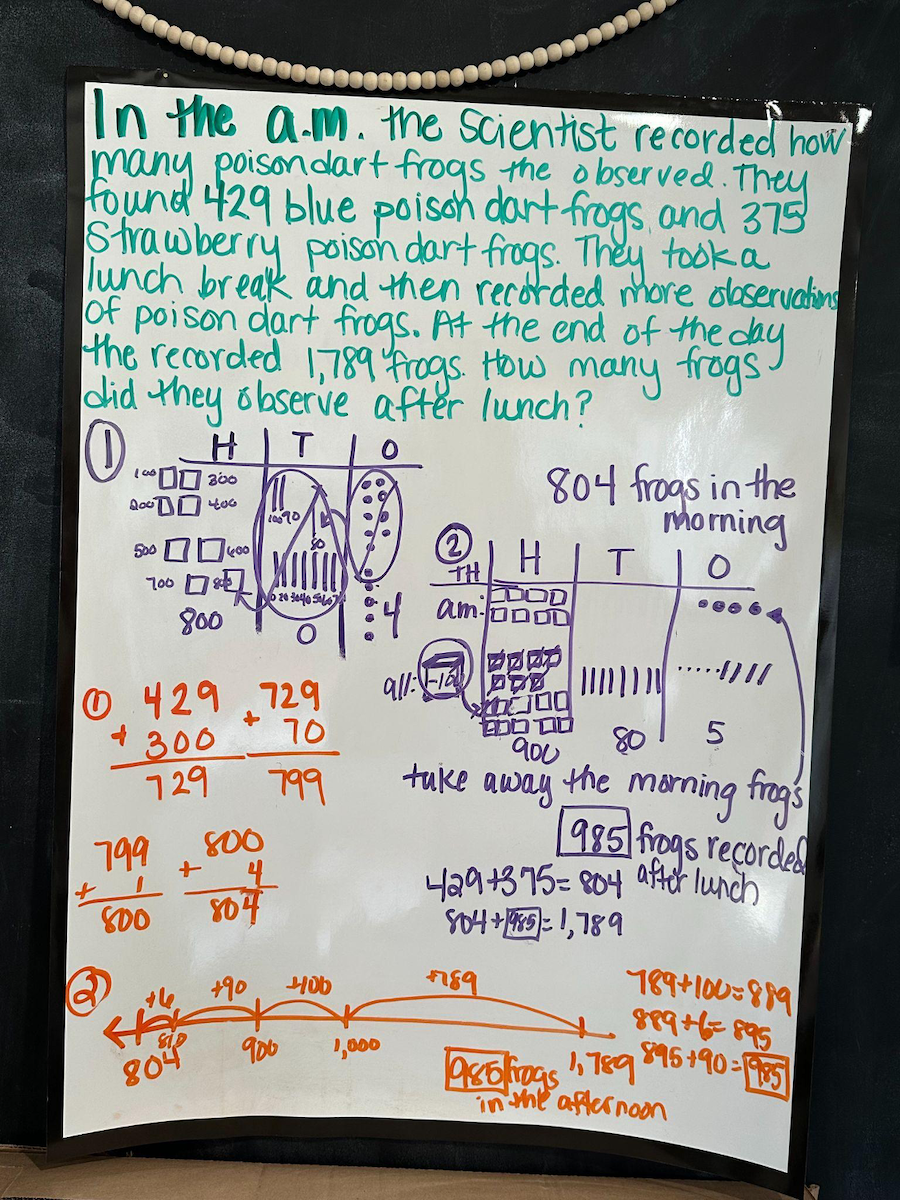 In the a.m. the Scientist recorded how
many poison dart frogs the observed. They
found 429 blue poison dart frogs, and 375
Strawberry poison dart frogs. They took a
lunch break and then recorded more observations
of poison dart frogs. At the end of the day
the recorded 1,789 frogs. How many frogs
did they observe after lunch?
1
H T O
100 300
200 400
500 600
700
800 0 4
804 frogs in the
morning
2
TH H T O
am:
all:
900 80 5
take away the morning frogs
985 frogs recorded
after lunch
429+375=804
804+985=1,789
1
429
+ 300
729
729
+ 70
799
799
+ 1
800
800
+ 4
804
2
+6 +90 +100 +789
804 810 900 1,000 1,789
985 frogs
in the afternoon
789+100=889
889+6=895
895+90=985